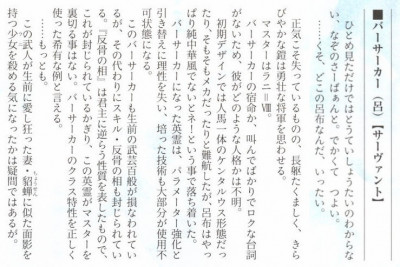 ■バーサーカー（呂）【サーヴァント】
ひとめ見ただけではとうていしょうたいのわからな
い、なぞのさーばぁんと。でかくて つよい。
……くそ、どこの呂布なんだ、いったい。
正気こそ失っているものの、長躯たくましく、きら
びやかな鎧は勇壮な将軍を思わせる。
マスターはラニ＝Ⅷ。
バーサーカーの宿命か、叫んでばかりでロクな台詞
がないため、彼がどのような人格かは不明。
初期デザインでは人馬一体のケンタウルス形態だっ
たり、そもそもメカだったりと難航したが、呂布はやっ
ぱり純中華風でないとネ！という事で落ち着いた。
バーサーカーになった英霊は、パラメーター強化と
引き替えに理性を失い、培った技術も大部分が使用不
可状態になる。
このバーサーカーも生前の武芸百般が損なわれてい
るが、その代わりにスキル・反骨の相も封じられてい
る。『反骨の相』は君主に逆らう性質を表したもので、
これが封じられているかぎり、この英霊がマスターを
裏切る事はない。バーサーカーのクラス特性を正しく
使った希有な例と言える。
……もっとも。
この武人が生前に愛し狂った妻・貂蝉に似た面影を
持つ少女を殺める気になったかは疑問ではあるが。